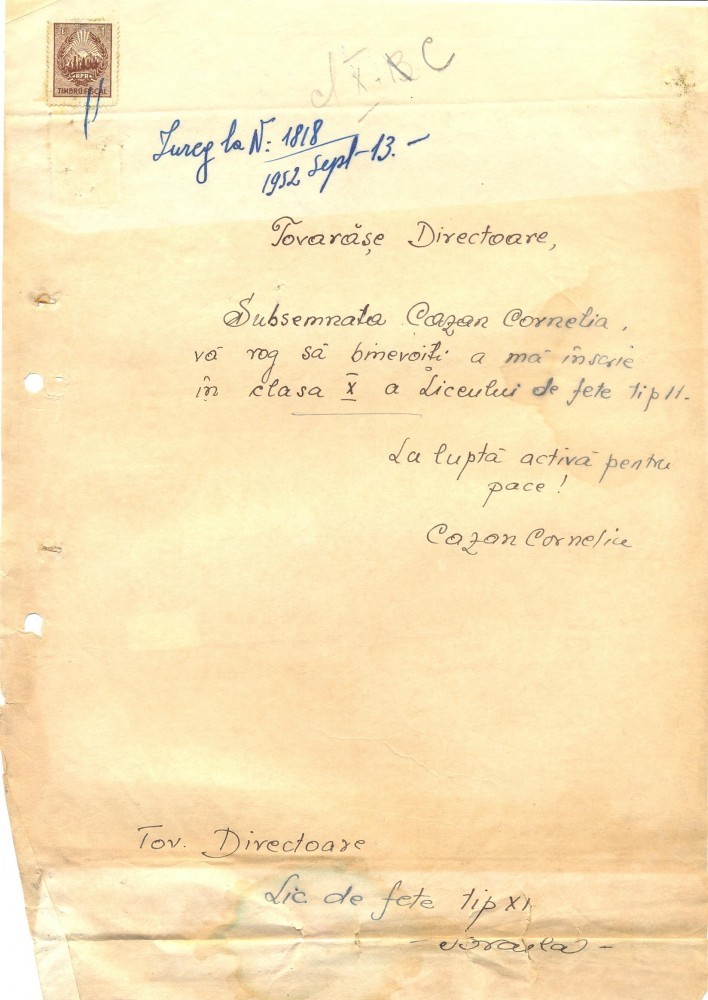 RPR
TIMBRU FISCAL
X. B C
Inreg la N: 1818
1952 Sept-13.-
Tovarășe Directoare,
Subsemnata Cazan Cornelia,
vă rog să binevoiți a mă înscrie
în clasa X a Liceului de fete tip II.
La luptă activă pentru
pace!
Cazan Cornelia
Tov. Directoare
Lic de fete tip XI